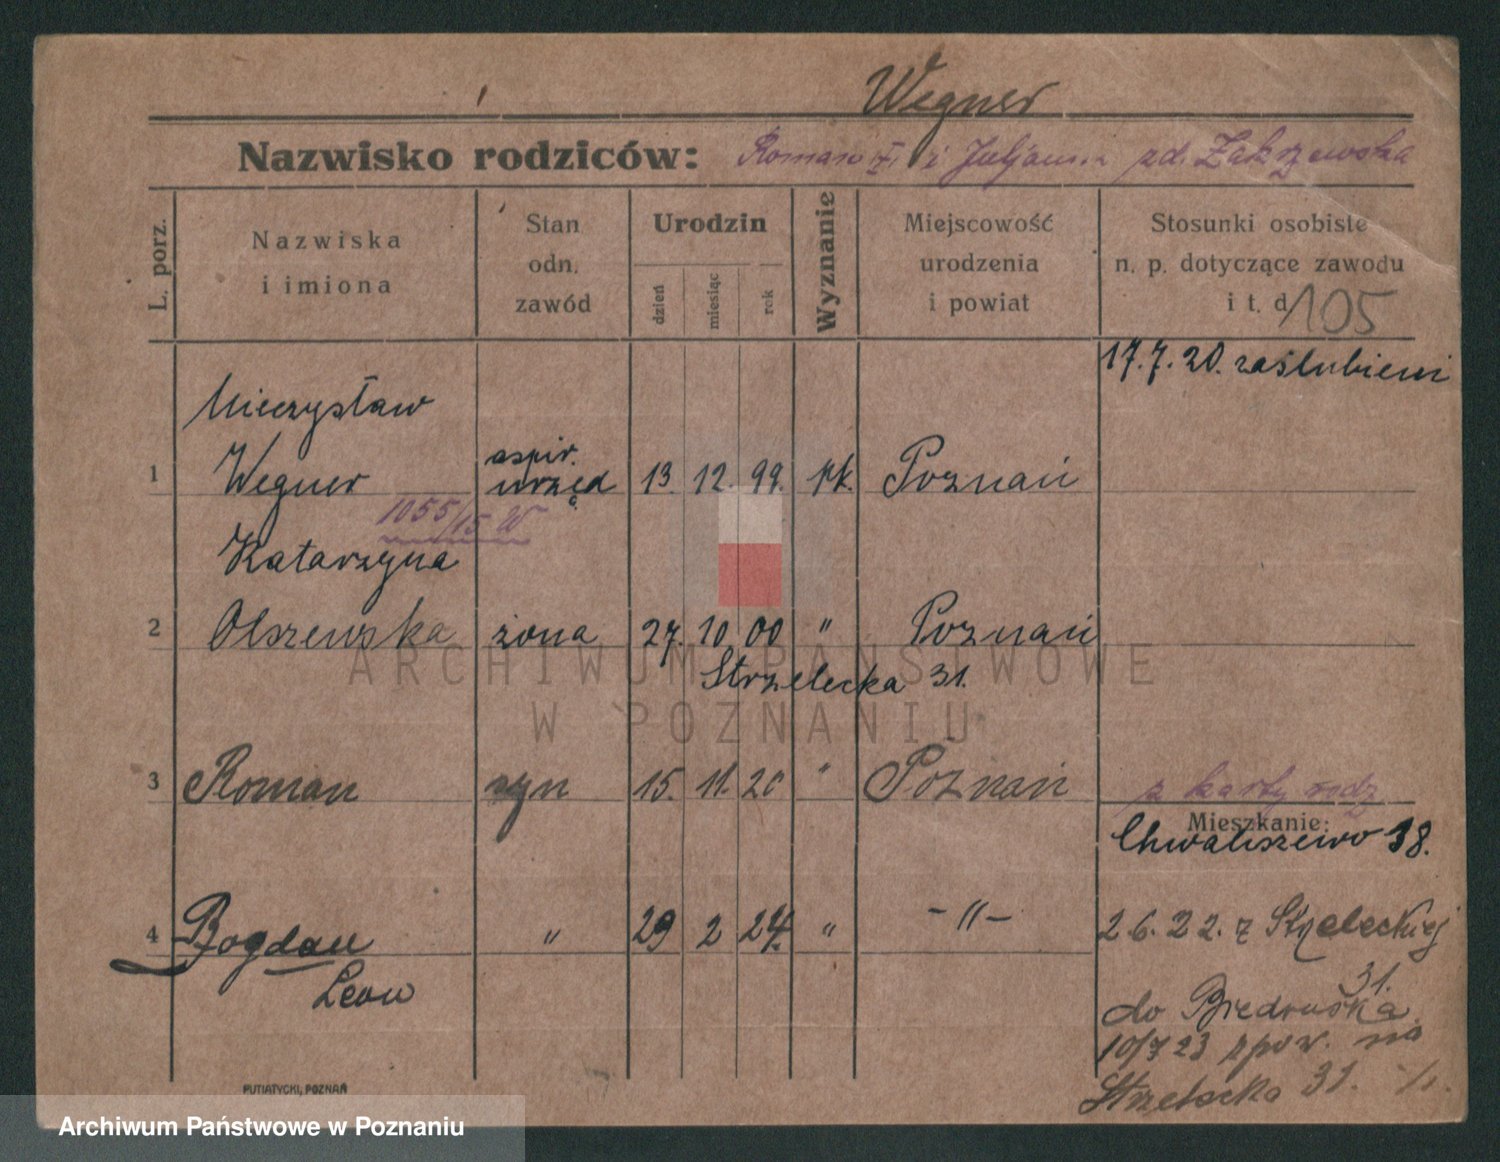 Wegner
Nazwisko rodziców: Roman i Juljanna zd. Zakrzewska
L. porz.
Nazwiska i imiona
Stan odn. zawód
Urodzin
dzień
miesiąc
rok
Wyznanie
Miejscowość urodzenia i powiat
Stosunki osobiste n. p. dotyczące zawodu i t. d.
105
17.7.20. zaślubieni
Mieczysław
1 Wegner aspir. urzęd 13. 12. 99. rk. Poznań
1055/15 W
Katarzyna
2 Olszewska żona 27. 10 00 " Poznań
Strzelecka 31.
3 Roman syn 15. 11. 20 " Poznań
z karty rodz
Mieszkanie:
Chwaliszewo 38.
4 Bogdan " 29 2 24. " -"-
Leon
2.6.22. z Strzeleckiej 31.
do Biedruska
10/7 23 spow. na
Strzelecka 31.
PUTIATYCKI, POZNAŃ
ARCHIWUM PAŃSTWOWE
W POZNANIU
Archiwum Państwowe w Poznaniu